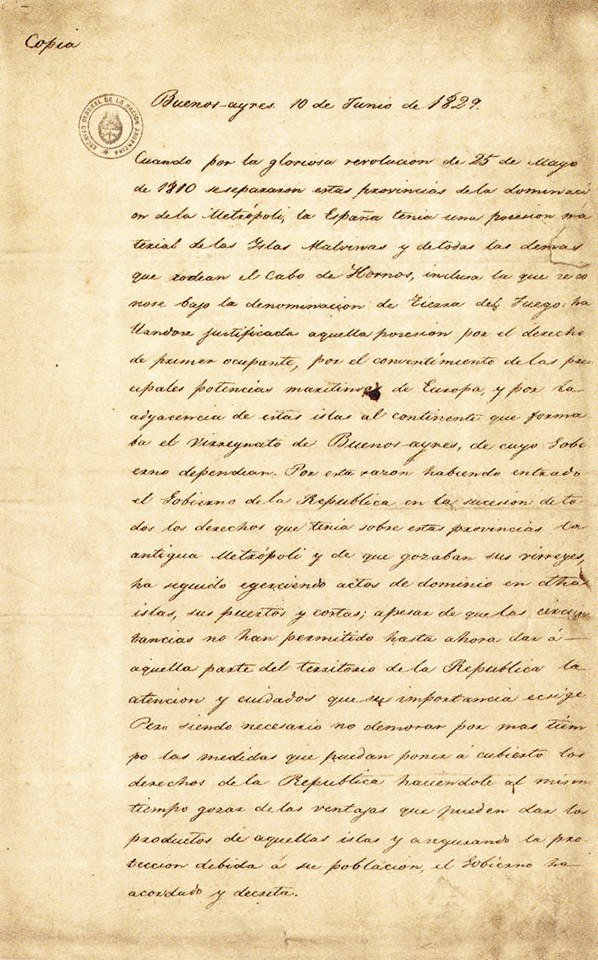 Copia
ARCHIVO GENERAL DE LA NACION ARGENTINA
Buenos-ayres 10 de Junio de 1829.
Cuando por la gloriosa revolucion de 25 de Mayo
de 1810 se separaron estas provincias de la dominaci
on de la Metrópoli, la España tenia una posesion ma
terial de las Islas Malvinas y de todas las demas
que rodean el Cabo de Hornos, inclusa la que se co
nose bajo la denominacion de Tierra del Fuego: ha
llandose justificada aquella posesion por el derecho
de primer ocupante, por el consentimiento de las prin
cipales potencias maritimas de Europa, y por la
adyacencia de estas islas al continente que forma
ba el Virreynato de Buenos-ayres, de cuyo Gobi
erno dependian. Por esta razon habiendo entrado
el Gobierno de la Republica en la sucesion de to
dos los derechos que tenia sobre estas provincias la
antigua Metrópoli y de que gozaban sus virreyes,
ha seguido egerciendo actos de dominio en dhas
islas, sus puertos y costas; apesar de que las circuns
tancias no han permitido hasta ahora dar á
aquella parte del territorio de la Republica la
atencion y cuidados que su importancia ecsige
Pero siendo necesario no demorar por mas tiem
po las medidas que puedan poner á cubierto los
derechos de la Republica haciendole al mismo
tiempo gozar de las ventajas que pueden dar los
productos de aquellas islas y asegurando la pro
teccion debida á su poblacion, el Gobierno ha
acordado y decreta.